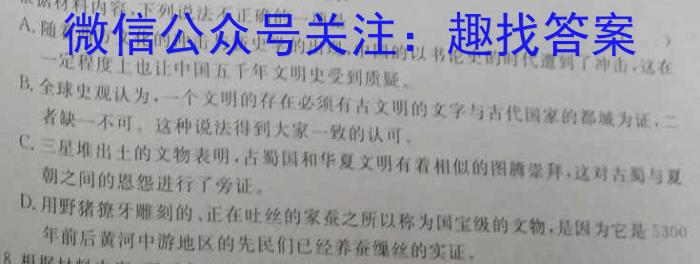 根据材料内容,下列说法不正确的一项是
微信公众号关注:趣找答案
A.随着 的以书论史的时代遭到了冲击,这在
一定程度上也让中国五千年文明史受到质疑。
B.全球史观认为,一个文明的存在必须有古文明的文字与古代国家的都城为证,二
者缺一不可。这种说法得到大家一致的认可。
C.三星堆出土的文物表明,古蜀国和华夏文明有着相似的图腾崇拜,这对古蜀与夏
朝之间的恩怨进行了旁证。
D.用野猪獠牙雕刻的、正在吐丝的家蚕之所以称为国宝级的文物,是因为它是5300
年前后黄河中游地区的先民们已经养蚕缫丝的实证。
8.根据材料内容